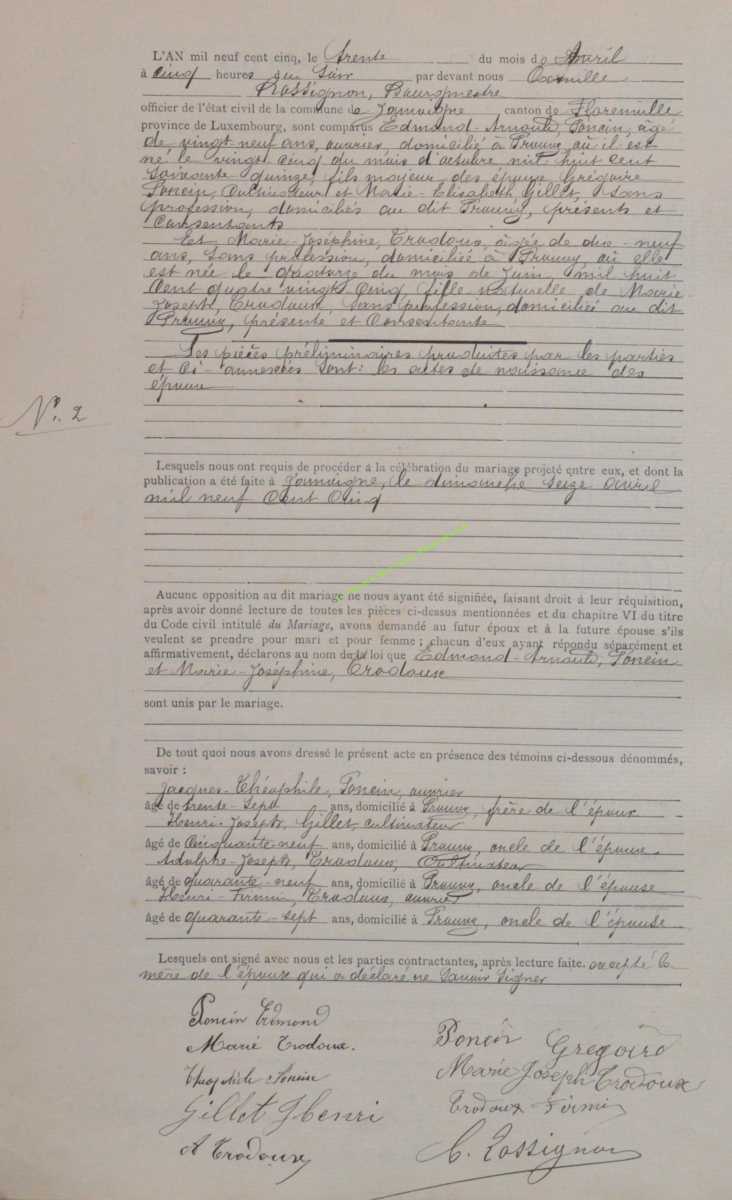 L'AN mil neuf cent cinq, le trente du mois de Avril
à cinq heures du soir par devant nous Camille
Rossignon, Bourgmestre
officier de l'état civil de la commune de Jamoigne canton de Florenville
province de Luxembourg, sont comparus Edmond-Arnould, Poncin, âgé
de vingt neuf ans, ouvrier, domicilié à Prouvy où il est
né le vingt cinq du mois d'octobre mil huit cent
soixante quinze, fils majeur des époux Grégoire
Poncin, Cultivateur et Marie-Elisabeth, Gillet, sans
profession, domiciliés au dit Prouvy, présents et
consentants
Et Marie-Joséphine, Trodoux, âgée de dix-neuf
ans, sans profession, domiciliée à Prouvy, où elle
est née le quatorze du mois de Juin, mil huit
cent quatre vingt cinq fille naturelle de Marie
Joseph, Trodoux, sans profession, domiciliée au dit
Prouvy, présente et Consentante
Les pièces préliminaires produites par les parties
et ci-annexées sont: les actes de naissance des
époux
N°. 2
Lesquels nous ont requis de procéder à la célébration du mariage projeté entre eux, et dont la
publication a été faite à Jamoigne, le dimanche seize avril
mil neuf cent cinq
Aucune opposition au dit mariage ne nous ayant été signifiée, faisant droit à leur réquisition,
après avoir donné lecture de toutes les pièces ci-dessus mentionnées et du chapitre VI du titre
du Code civil intitulé du Mariage, avons demandé au futur époux et à la future épouse s'ils
veulent se prendre pour mari et pour femme ; chacun d'eux ayant répondu séparément et
affirmativement, déclarons au nom de la loi que Edmond-Arnould, Poncin
et Marie-Joséphine, Trodoux
sont unis par le mariage.
De tout quoi nous avons dressé le présent acte en présence des témoins ci-dessous dénommés,
savoir :
Jacques-Théophile, Poncin, ouvrier
âgé de trente-sept ans, domicilié à Prouvy, frère de l'époux
Henri-Joseph, Gillet, cultivateur
âgé de Cinquante-neuf ans, domicilié à Prouvy, oncle de l'époux
Adolphe-Joseph, Trodoux, Cultivateur
âgé de quarante-neuf ans, domicilié à Prouvy, oncle de l'épouse
Henri-Firmin, Trodoux, ouvrier
âgé de quarante-sept ans, domicilié à Prouvy, oncle de l'épouse
Lesquels ont signé avec nous et les parties contractantes, après lecture faite. excepté la
mère de l'époux qui a déclaré ne savoir signer
Poncin Edmond
Marie Trodoux.
Théophile Poncin
Gillet Henri
A Trodoux
Poncin Grégoire
Marie Joseph Trodoux
Trodoux Firmin
C. Rossignon